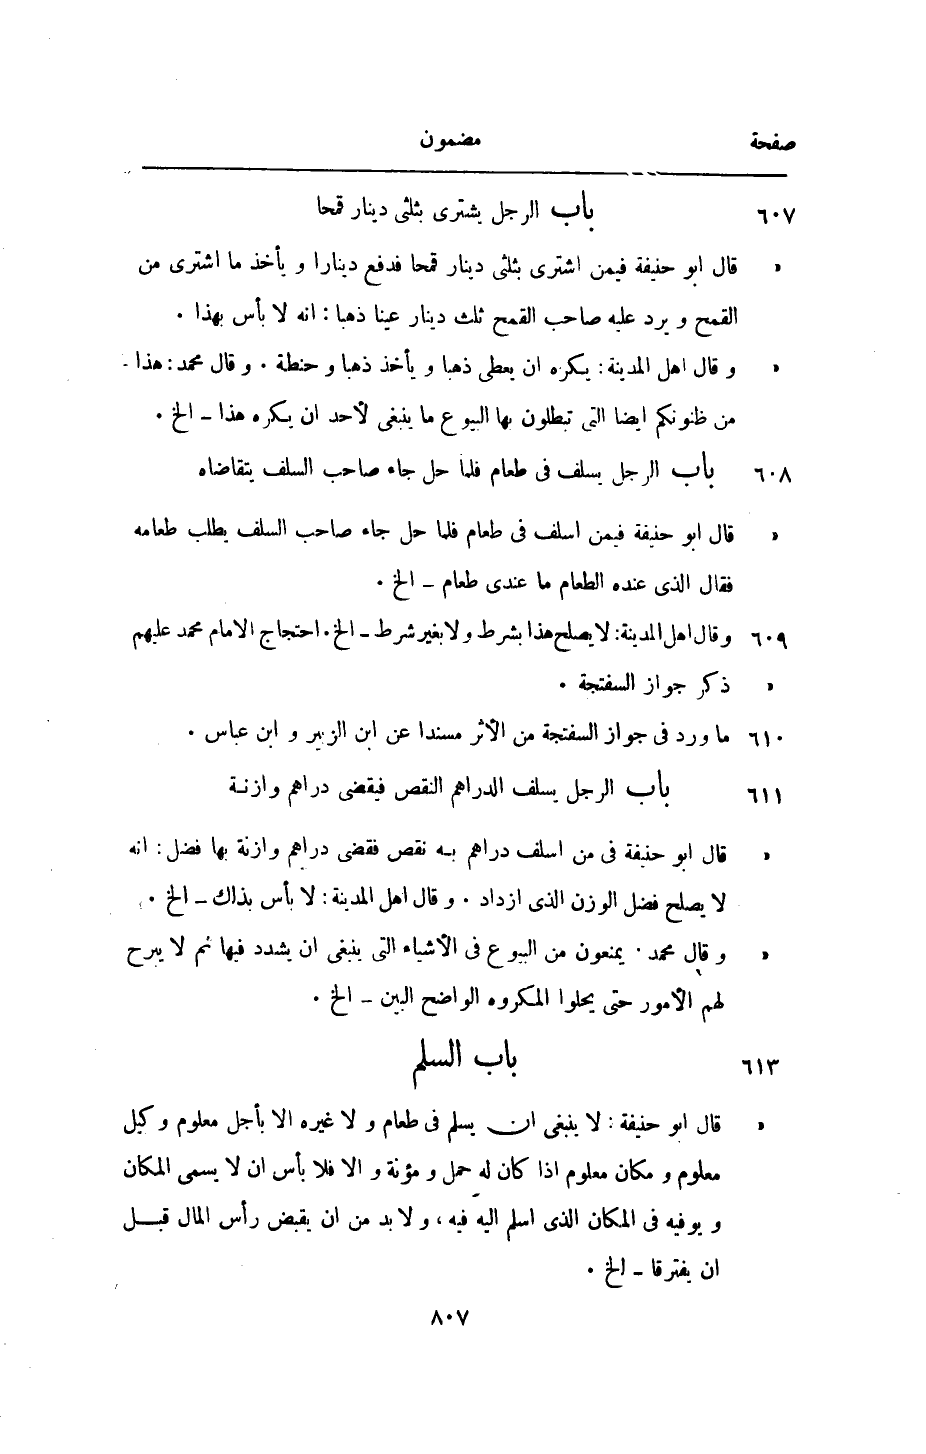 صفحة مضمون
٦٠٧ باب الرجل يشترى بثلثى دينار قمحا
» قال ابو حنيفة فيمن اشترى بثلثى دينار قمحا فدفع دينارا و يأخذ ما اشترى من
القمح و يرد عليه صاحب القمح ثلث دينار عينا ذهبا : انه لا بأس بهذا .
» و قال اهل المدينة : يكره ان يعطى ذهبا و يأخذ ذهبا و حنطة . و قال محمد : هذا
من ظنونكم ايضا التى تبطلون بها البيوع ما ينبغى لأحد ان يكره هذا ـ الخ .
٦٠٨ باب الرجل يسلف فى طعام فلما حل جاء صاحب السلف يتقاضاه
» قال ابو حنيفة فيمن اسلف فى طعام فلما حل جاء صاحب السلف يطلب طعامه
فقال الذى عنده الطعام ما عندى طعام ـ الخ .
٦٠٩ و قال اهل المدينة : لا يصلح هذا بشرط و لا بغير شرط ـ الخ . احتجاج الامام محمد عليهم
» ذكر جواز السفتجة .
٦١٠ ما ورد فى جواز السفتجة من الأثر مسندا عن ابن الزبير و ابن عباس .
٦١١ باب الرجل يسلف الدراهم النقص فيقضى دراهم وازنة
» قال ابو حنيفة فى من اسلف دراهم به نقص فقضى دراهم وازنة بها فضل : انه
لا يصلح فضل الوزن الذى ازداد . و قال اهل المدينة : لا بأس بذاك ـ الخ .
» و قال محمد . يمنعون من البيوع فى الأشياء التى ينبغى ان يشدد فيها ثم لا يبرح
لهم الأمور حتى يحلوا المكروه الواضح البين ـ الخ .
٦١٣ باب السلم
» قال ابو حنيفة : لا ينبغى ان يسلم فى طعام و لا غيره الا بأجل معلوم و كيل
معلوم و مكان معلوم اذا كان له حمل و مؤنة و الا فلا بأس ان لا يسمى المكان
و يوفيه فى المكان الذى اسلم اليه فيه ، و لا بد من ان يقبض رأس المال قبل
ان يفترقا ـ الخ .
٨٠٧